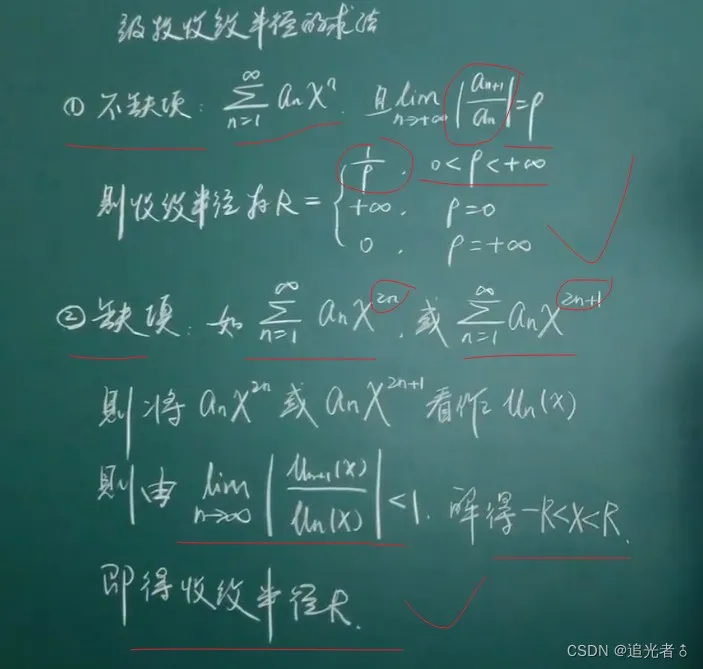 级数收敛半径的求法
① 不缺项: ∑_{n=1}^{∞} aₙxⁿ. 且 lim_{n→+∞} |aₙ₊₁/aₙ| = ρ
则收敛半径为 R = { 1/ρ, 0<ρ<+∞
+∞, ρ=0
0, ρ=+∞
② 缺项: 如 ∑_{n=1}^{∞} aₙx²ⁿ, 或 ∑_{n=1}^{∞} aₙx²ⁿ⁺¹
则将 aₙx²ⁿ 或 aₙx²ⁿ⁺¹ 看作 uₙ(x)
则由 lim_{n→∞} |uₙ₊₁(x)/uₙ(x)| <1. 解得 -R<x<R.
即得收敛半径R.
CSDN @追光者♂